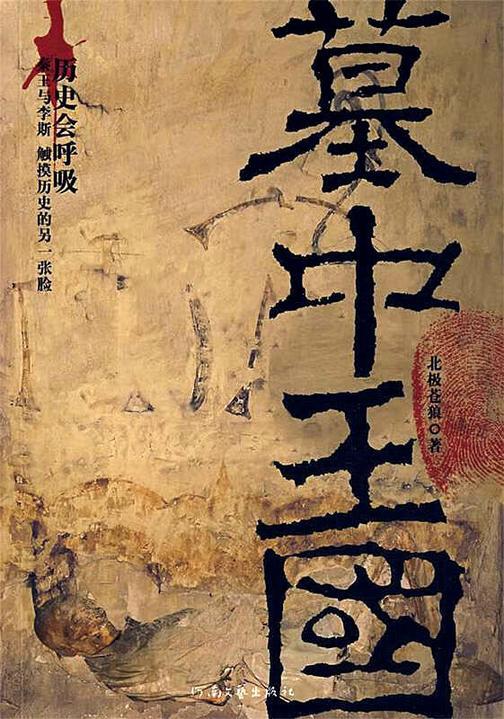 墓中王國
历史会呼吸
秦王与李斯 触摸历史的另一张脸
北极苍狼◎著
河南文艺出版社